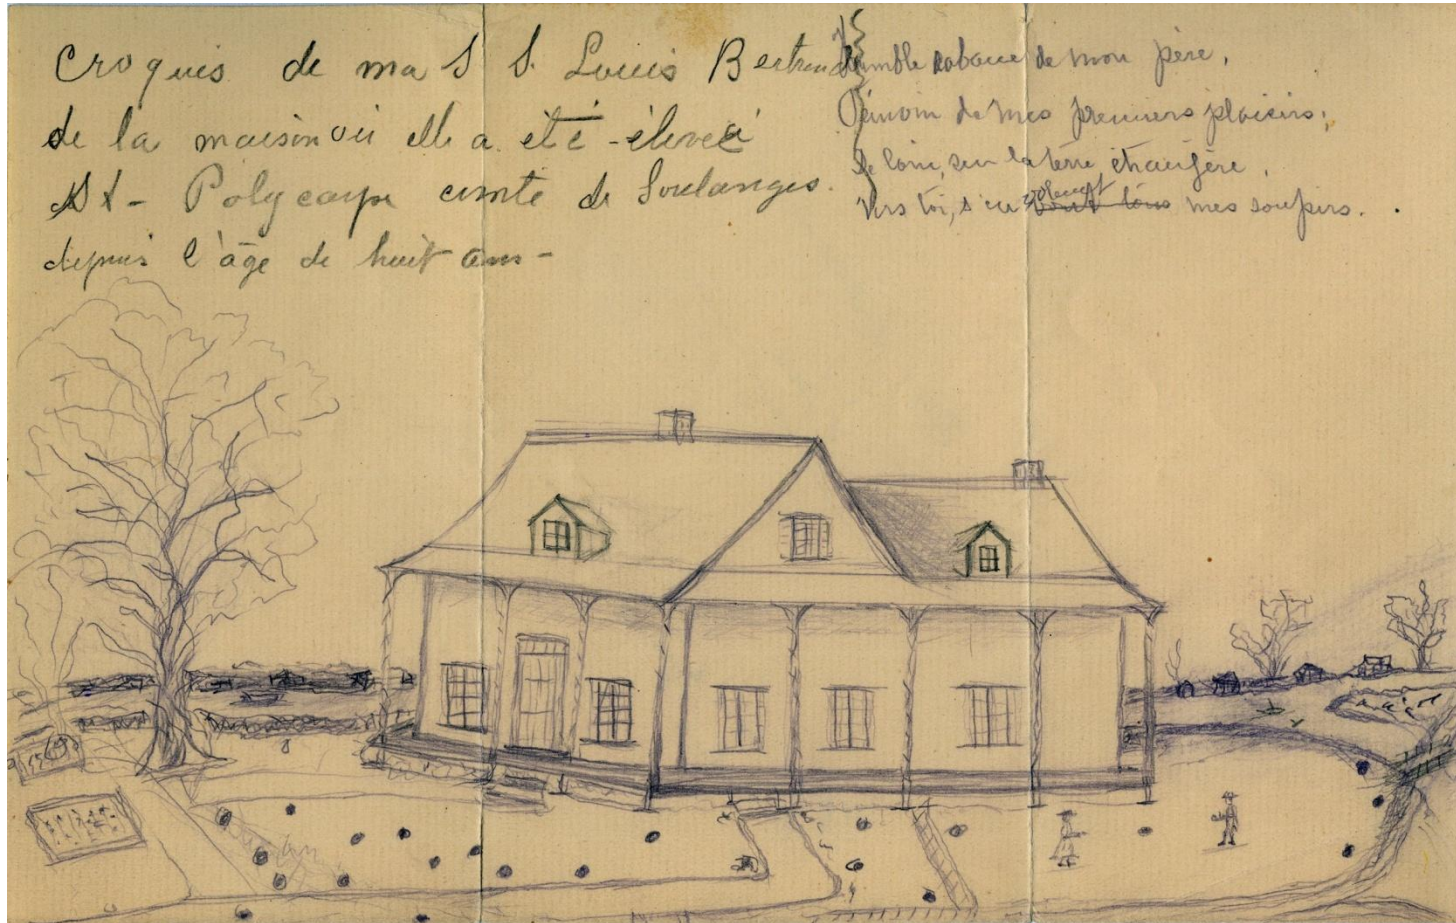 Croquis de ma S S. Louis Bertrand
de la maison où elle a été élevée
St-Polycarpe comté de Soulanges.
depuis l'âge de huit ans-
Humble cabane de mon père,
Témoin de mes premiers plaisirs,
De loin, sur la terre étrangère,
Vers toi, s'en volent mes soupirs.